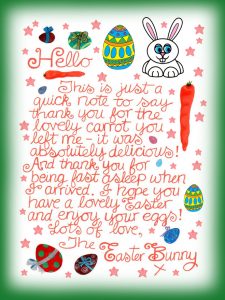 Hello
This is just a
quick note to say
thank you for the
lovely carrot you
left me - it was
absolutely delicious!
And thank you for
being fast asleep when
I arrived. I hope you
have a lovely Easter
and enjoy your eggs!
Lots of love,
The Easter Bunny
x